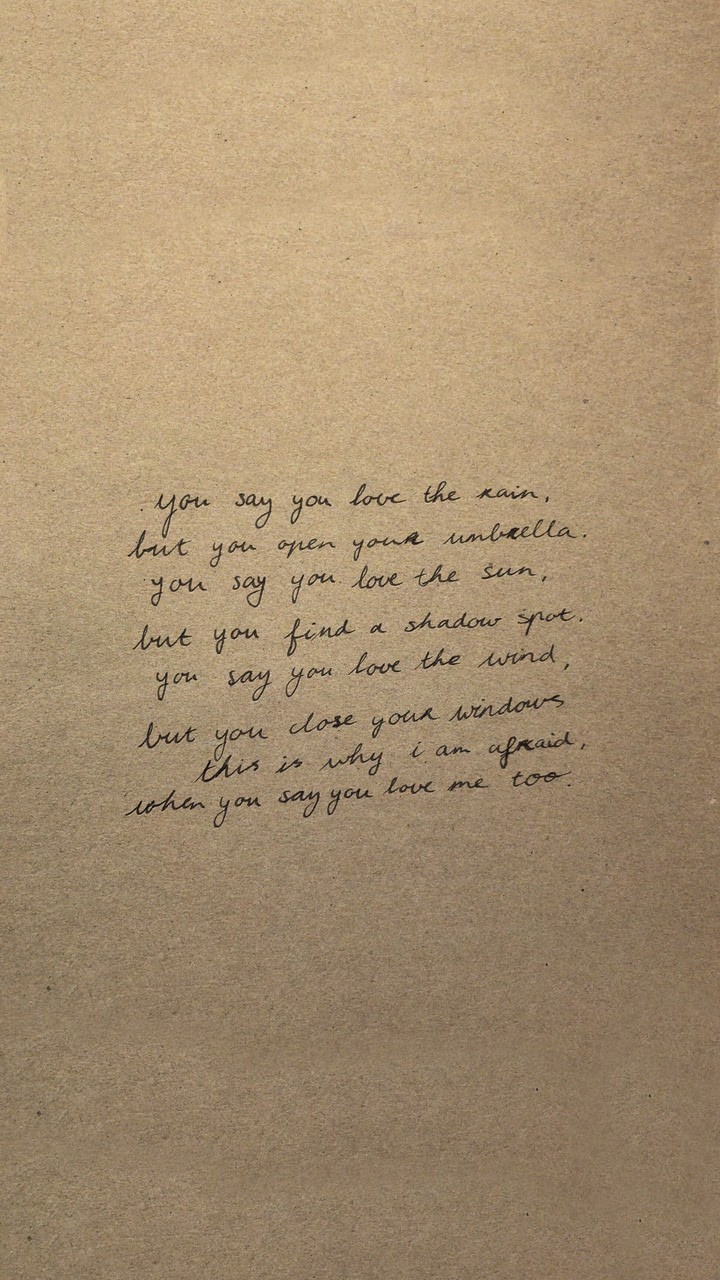 you say you love the rain,
but you open your umbrella.
you say you love the sun,
but you find a shadow spot.
you say you love the wind,
but you close your windows
this is why i am afraid,
when you say you love me too.